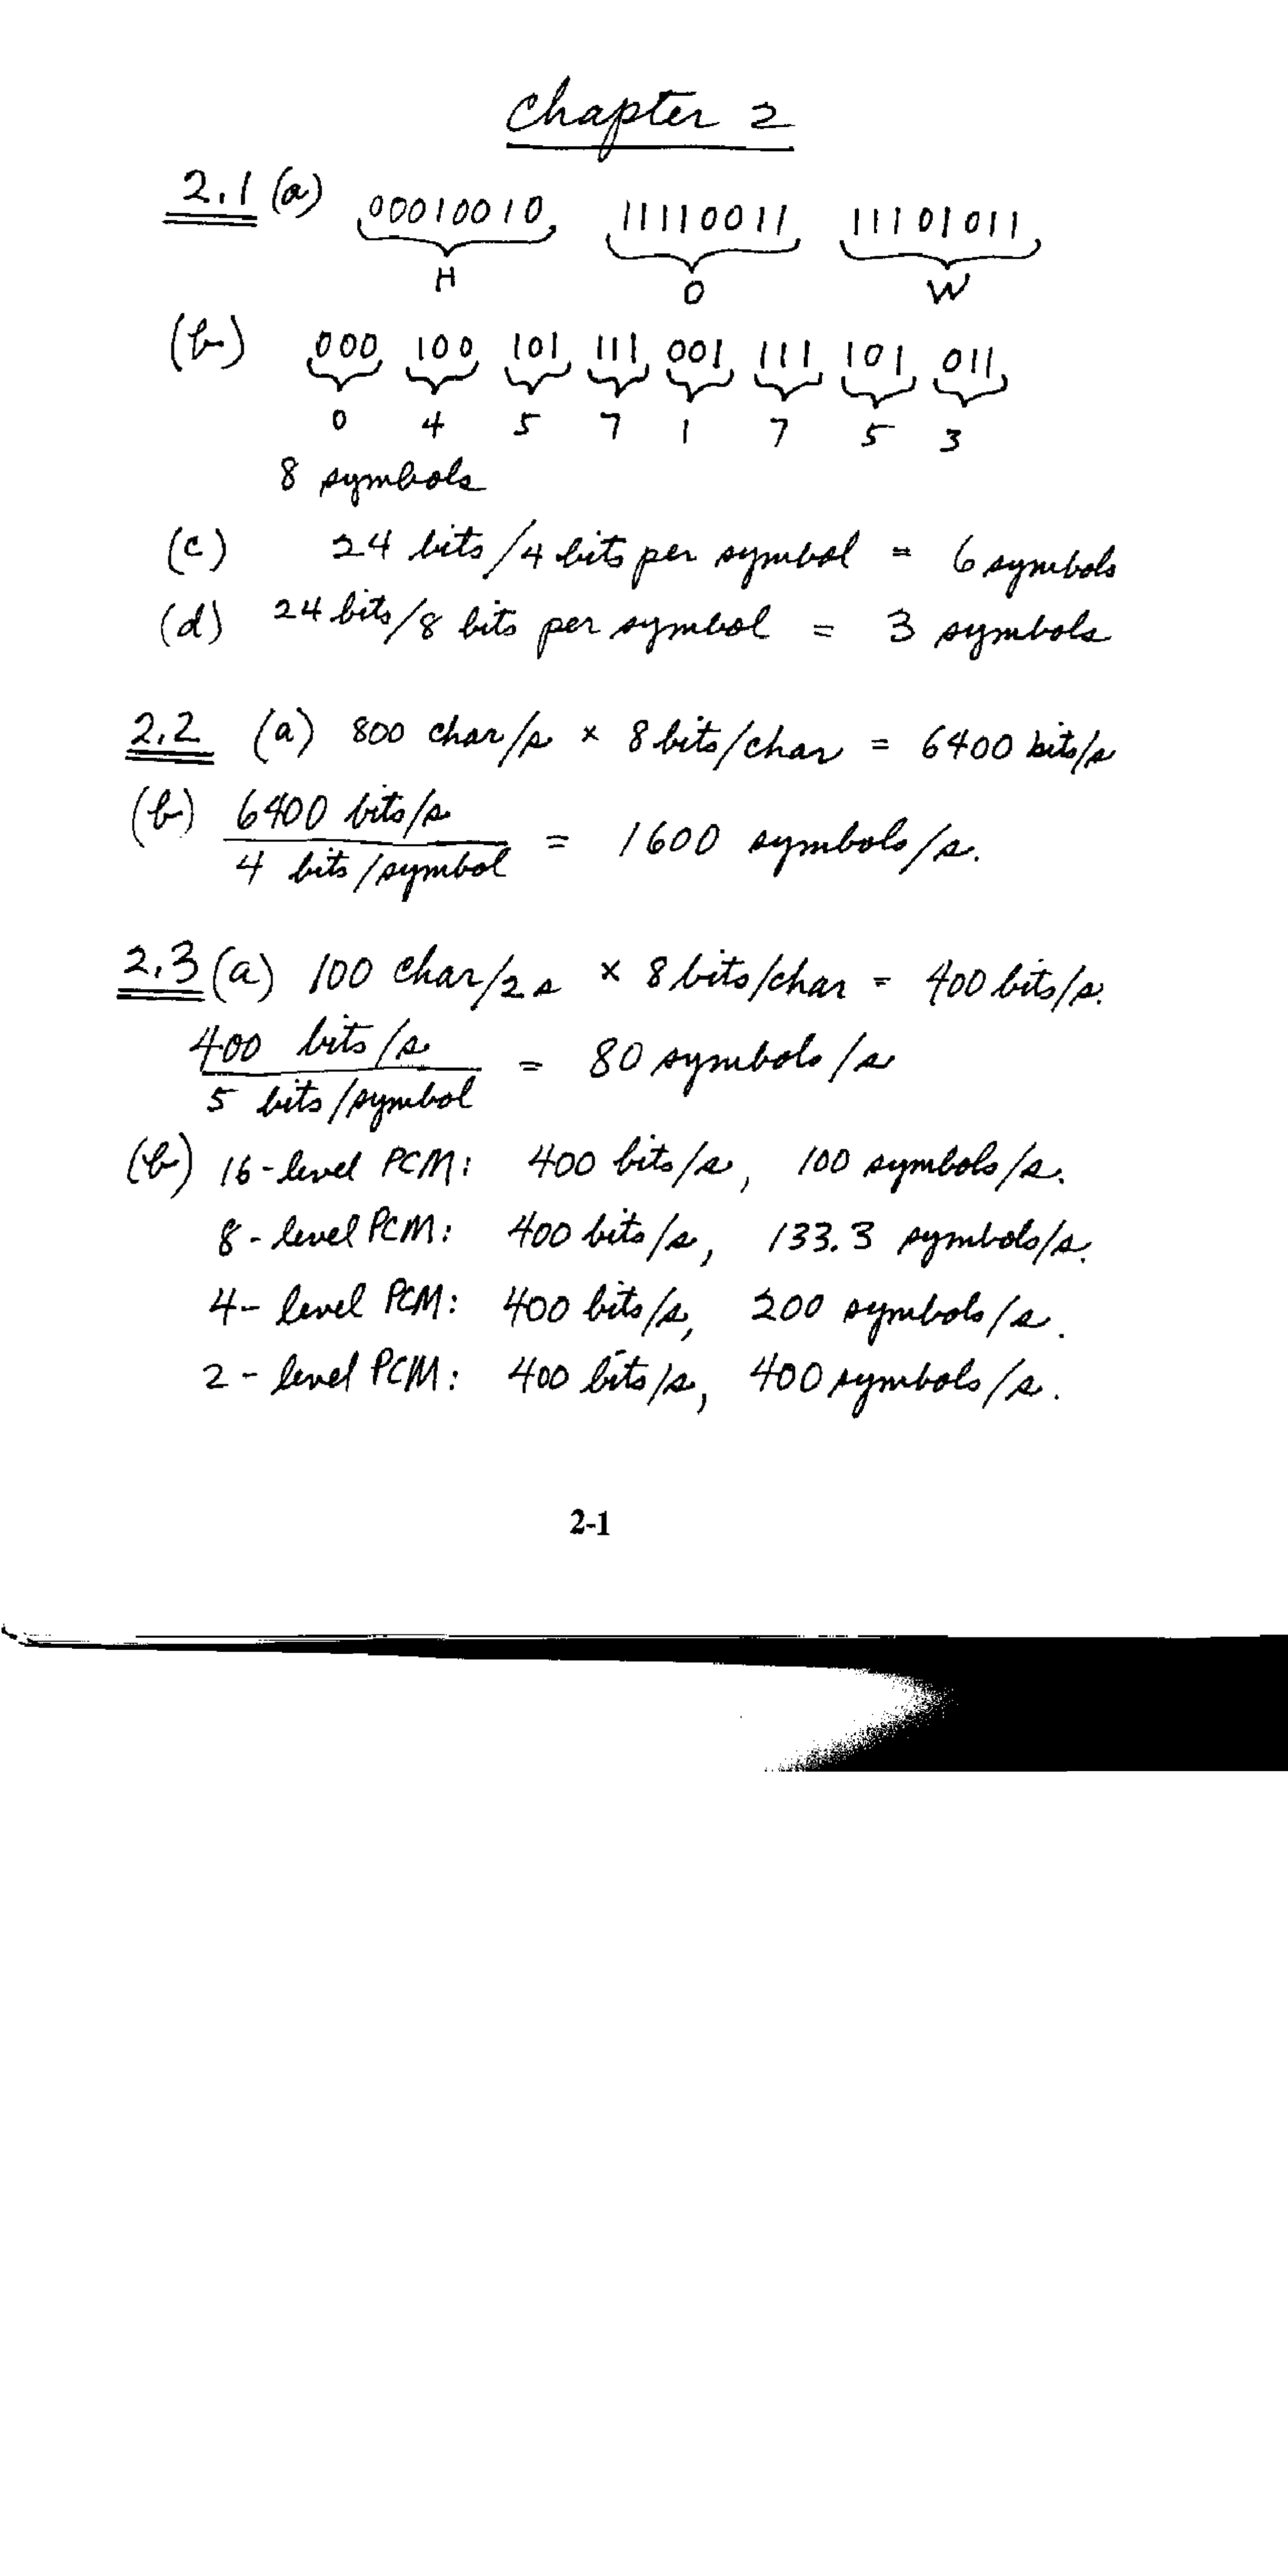 Chapter 2
2.1 (a) 00010010 11110011 11101011
H O W
(b) 000 100 101 111 001 111 101 011
0 4 5 7 1 7 5 3
8 symbols
(c) 24 bits/4 bits per symbol = 6 symbols
(d) 24 bits/8 bits per symbol = 3 symbols
2.2 (a) 800 char/s × 8 bits/char = 6400 bits/s
(b) 6400 bits/s
4 bits/symbol = 1600 symbols/s.
2.3 (a) 100 char/2 s × 8 bits/char = 400 bits/s.
400 bits/s
5 bits/symbol = 80 symbols/s
(b) 16-level PCM: 400 bits/s, 100 symbols/s.
8-level PCM: 400 bits/s, 133.3 symbols/s.
4-level PCM: 400 bits/s, 200 symbols/s.
2-level PCM: 400 bits/s, 400 symbols/s.
2-1